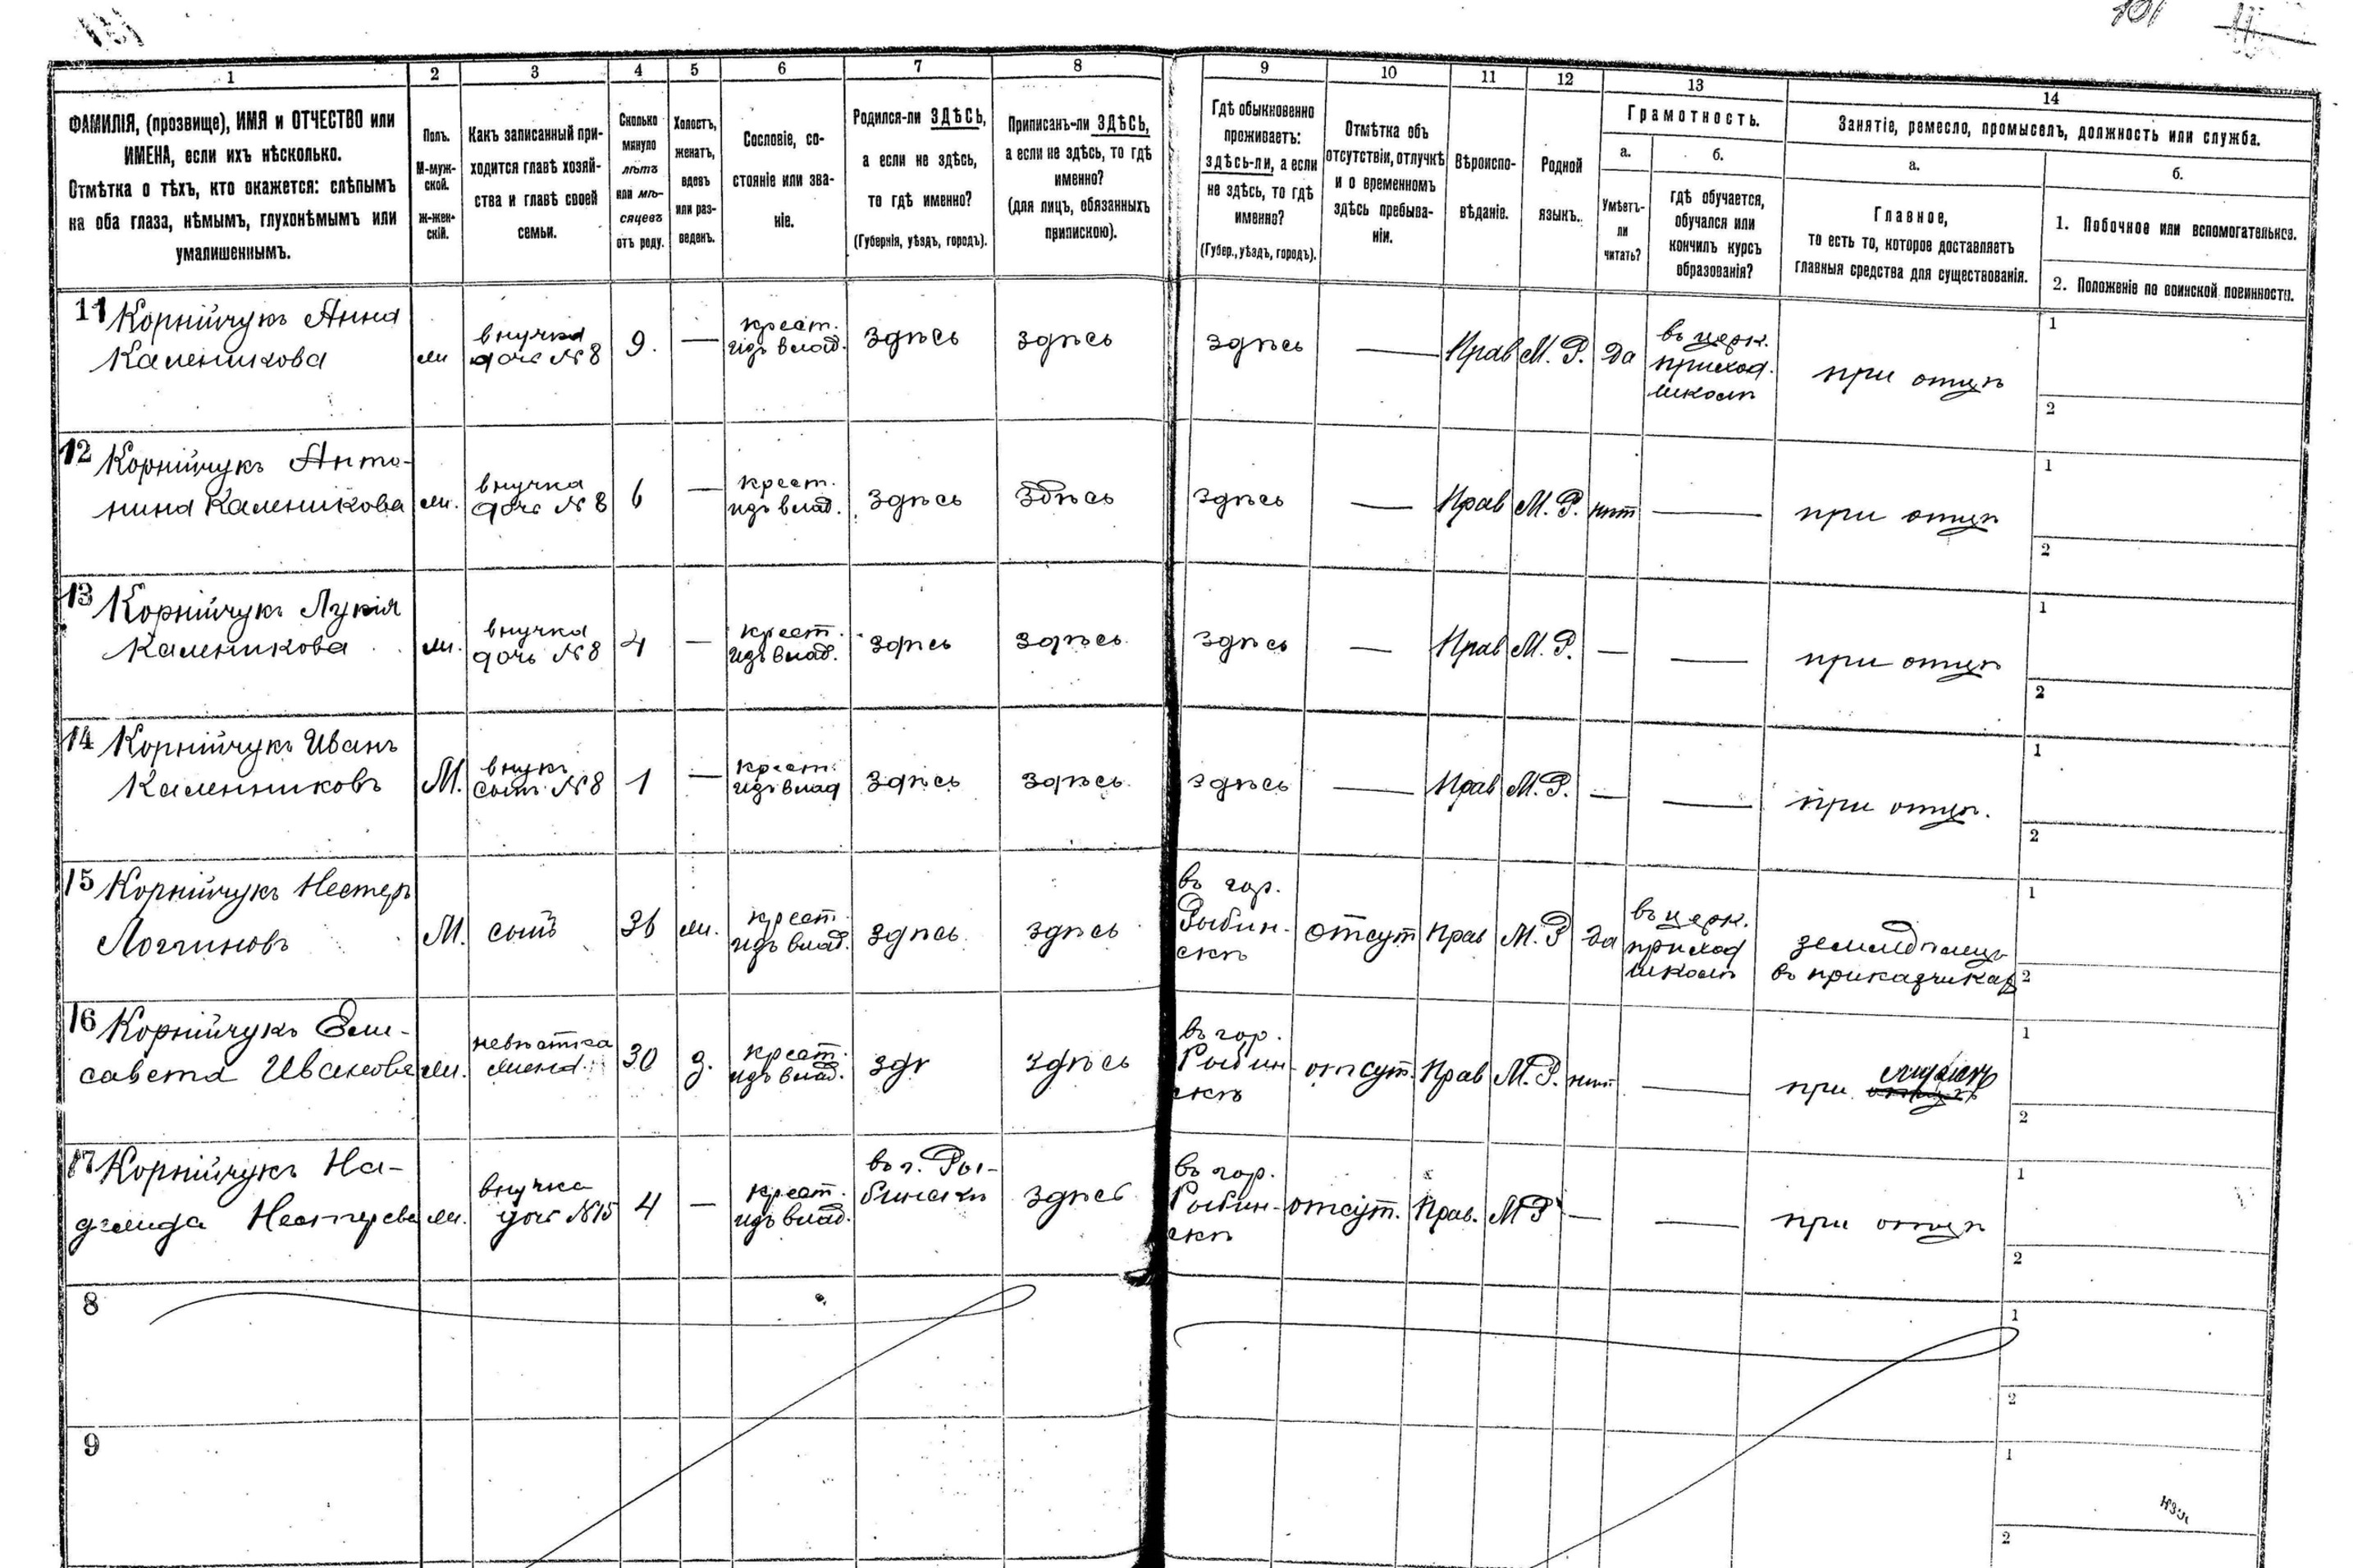 101
1 2 3 4 5 6 7 8 9 10 11 12 13 14
ФАМИЛІЯ, (прозвище), ИМЯ и ОТЧЕСТВО или
ИМЕНА, если ихъ нѣсколько.
Отмѣтка о тѣхъ, кто окажется: слѣпымъ
на оба глаза, нѣмымъ, глухонѣмымъ или
умалишеннымъ.
Полъ.
М-муж-
ской.
Ж-жен-
скій.
Какъ записанный при-
ходится главѣ хозяй-
ства и главѣ своей
семьи.
Сколько
минуло
лѣтъ
или мѣ-
сяцевъ
отъ роду.
Холостъ,
женатъ,
вдовъ
или раз-
веденъ.
Сословіе, со-
стояніе или зва-
ніе.
Родился-ли ЗДѢСЬ,
а если не здѣсь,
то гдѣ именно?
(Губернія, уѣздъ, городъ).
Приписанъ-ли ЗДѢСЬ,
а если не здѣсь, то гдѣ
именно?
(для лицъ, обязанныхъ
припискою).
Гдѣ обыкновенно
проживаетъ:
здѣсь-ли, а если
не здѣсь, то гдѣ
именно?
(Губер., уѣздъ, городъ).
Отмѣтка объ
отсутствіи, отлучкѣ
и о временномъ
здѣсь пребыва-
ніи.
Вѣроиспо-
вѣданіе.
Родной
языкъ.
Грамотность.
а.
Умѣетъ-
ли
читать?
б.
гдѣ обучается,
обучался или
кончилъ курсъ
образованія?
Занятіе, ремесло, промыселъ, должность или служба.
а.
Главное,
то есть то, которое доставляетъ
главныя средства для существованія.
б.
1. Побочное или вспомогательное.
2. Положеніе по воинской повинности.
11 Корнійчукъ Анна
Каленикова
ж
внучка
дочь №8
9.
—
крест.
изъ влад.
здѣсь
здѣсь
здѣсь
—
Прав
М. Р.
да
въ церк.
приход.
школѣ
при отцѣ
1
2
12 Корнійчукъ Анто-
нина Каленикова
ж.
внучка
дочь №8
6
—
крест.
изъ влад.
здѣсь
здѣсь
здѣсь
—
Прав
М. Р.
нѣт
—
при отцѣ
1
2
13 Корнійчукъ Лукія
Каленикова
ж.
внучка
дочь №8
4
—
крест.
изъ влад.
здѣсь
здѣсь
здѣсь
—
Прав
М. Р.
—
—
при отцѣ
1
2
14 Корнійчукъ Иванъ
Калениковъ
М.
внукъ
сынъ №8
1
—
крест.
изъ влад
здѣсь
здѣсь
здѣсь
—
Прав
М. Р.
—
—
при отцѣ.
1
2
15 Корнійчукъ Нестеръ
Логгиновъ
М.
сынъ
36
ж.
крест.
изъ влад.
здѣсь
здѣсь
въ гор.
Рыбин-
скѣ
отсут
Прав
М. Р
да
въ церк.
приход
школѣ
земледѣлецъ
въ приказчикахъ
1
2
16 Корнійчукъ Ели-
савета Иванова
ж.
невѣстка
жена
30
з.
крест.
изъ влад.
здѣ
здѣсь
въ гор.
Рыбин-
скѣ
отсут.
Прав
М. Р.
нѣт
—
при мужѣ
1
2
17 Корнійчукъ На-
дежда Нестерова
ж.
внучка
дочь №15
4
—
крест.
изъ влад.
въ г. Ры-
бинскѣ
здѣсь
въ гор.
Рыбин-
скѣ
отсут.
Прав.
М Р
—
—
при отцѣ
1
2
8
1
2
9
1
2